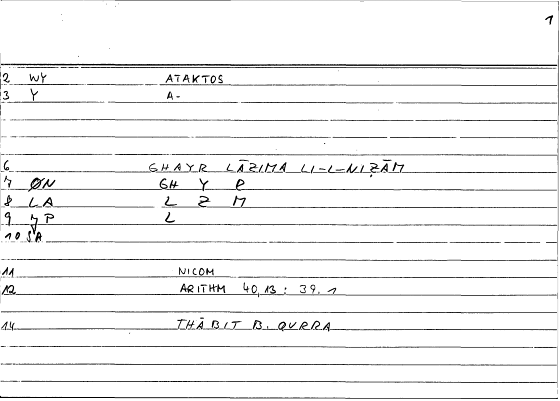 1
2 WY ATAKTOS
3 Y A-
6 GHAYR LĀZIMA LI-L-NIẒĀM
7 ØN GH Y R
8 LA L Z M
9 P L
10 SA
11 NICOM
12 ARITHM 40,13 : 39.1
14 THĀBIT B. QURRA